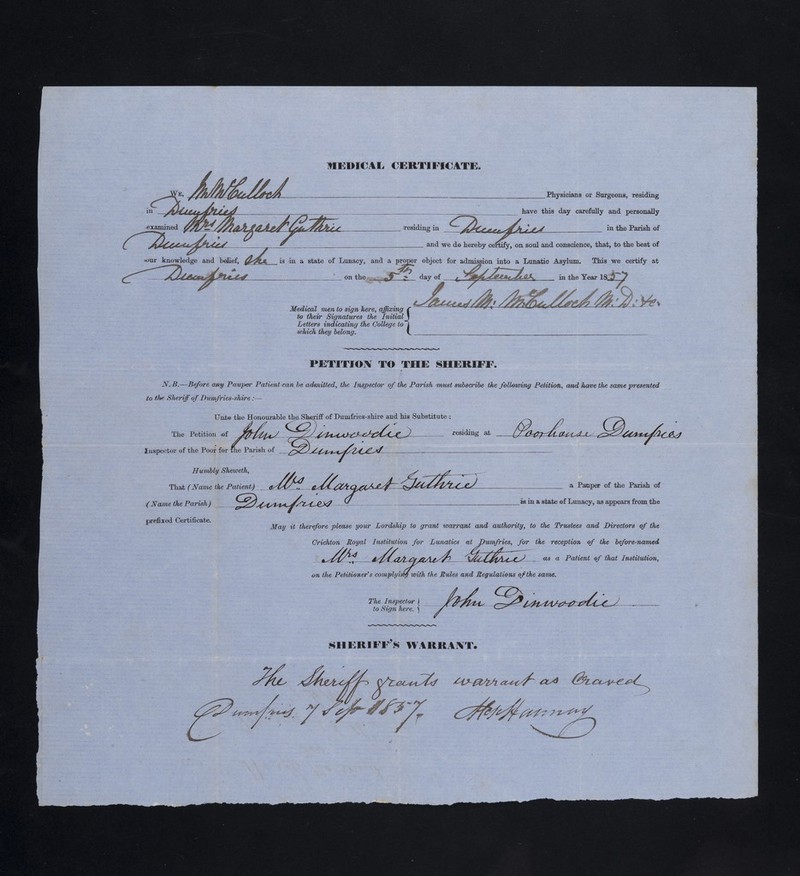 MEDICAL CERTIFICATE.
We, McCulloch Physicians or Surgeons, residing
in Dumfries have this day carefully and personally
examined Mrs Margaret Guthrie residing in Dumfries in the Parish of
Dumfries and we do hereby certify, on soul and conscience, that, to the best of
our knowledge and belief, she is in a state of Lunacy, and a proper object for admission into a Lunatic Asylum. This we certify at
Dumfries on the 5th day of September in the Year 1857
James McCulloch M.D. &c.
Medical men to sign here, affixing
to their Signatures the Initial
Letters indicating the College to
which they belong.
PETITION TO THE SHERIFF.
N.B.—Before any Pauper Patient can be admitted, the Inspector of the Parish must subscribe the following Petition, and have the same presented
to the Sheriff of Dumfries-shire:—
Unto the Honourable the Sheriff of Dumfries-shire and his Substitute;
The Petition of John Dinwoodie residing at Poorhouse Dumfries
Inspector of the Poor for the Parish of Dumfries
Humbly Sheweth,
That (Name the Patient) Mrs. Margaret Guthrie a Pauper of the Parish of
(Name the Parish) Dumfries is in a state of Lunacy, as appears from the
prefixed Certificate.
May it therefore please your Lordship to grant warrant and authority, to the Trustees and Directors of the
Crichton Royal Institution for Lunatics at Dumfries, for the reception of the before-named
Mrs. Margaret Guthrie as a Patient of that Institution,
on the Petitioner's complying with the Rules and Regulations of the same.
The Inspector
to Sign here. John Dinwoodie
SHERIFF'S WARRANT.
The Sheriff grants warrant as Craved
Dumfries. 7 Sep 1857.